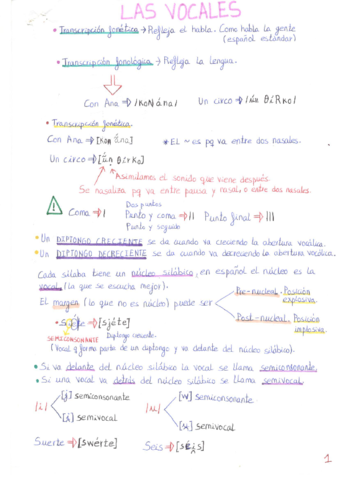 LAS VOCALES
• Transcripción fonética → Refleja el habla. Como habla la gente
(español estándar)
• Transcripción fonológica → Refleja la lengua.
Con Ana ⇒ /koN ána/ Un circo ⇒ /úN θíRko/
• Transcripción fonética.
Con Ana ⇒ [kon ána] * El ~ es pq va entre dos nasales.
Un circo ⇒ [ún θírko]
Asimilamos el sonido que viene después.
Se nasaliza pq va entre pausa y nasal, o entre dos nasales.
Coma ⇒ | Dos puntos
Punto y coma ⇒ || Punto final ⇒ |||
Punto y seguido
* Un DIPTONGO CRECIENTE se da cuando va creciendo la abertura vocálica.
* Un DIPTONGO DECRECIENTE se da cuando va decreciendo la abertura vocálica.
Cada sílaba tiene un núcleo silábico, en español el núcleo es la
vocal (lo que se escucha mejor).
Pre-nuclear. Posición
explosiva
El margen (lo que no es núcleo) puede ser
Post-nuclear. Posición
implosiva
• siéte ⇒ [sjéte]
SEMICONSONANTE Diptongo creciente.
(Vocal q forma parte de un diptongo y va delante del núcleo silábico).
• Si va delante del núcleo silábico la vocal se llama semiconsonante.
• Si una vocal va detrás del núcleo silábico se llama semivocal
/i/ [j] semiconsonante /u/ [w] semiconsonante.
[i̯] semivocal [u̯] semivocal
Suerte ⇒ [swérte] Seis ⇒ [séi̯s]
1